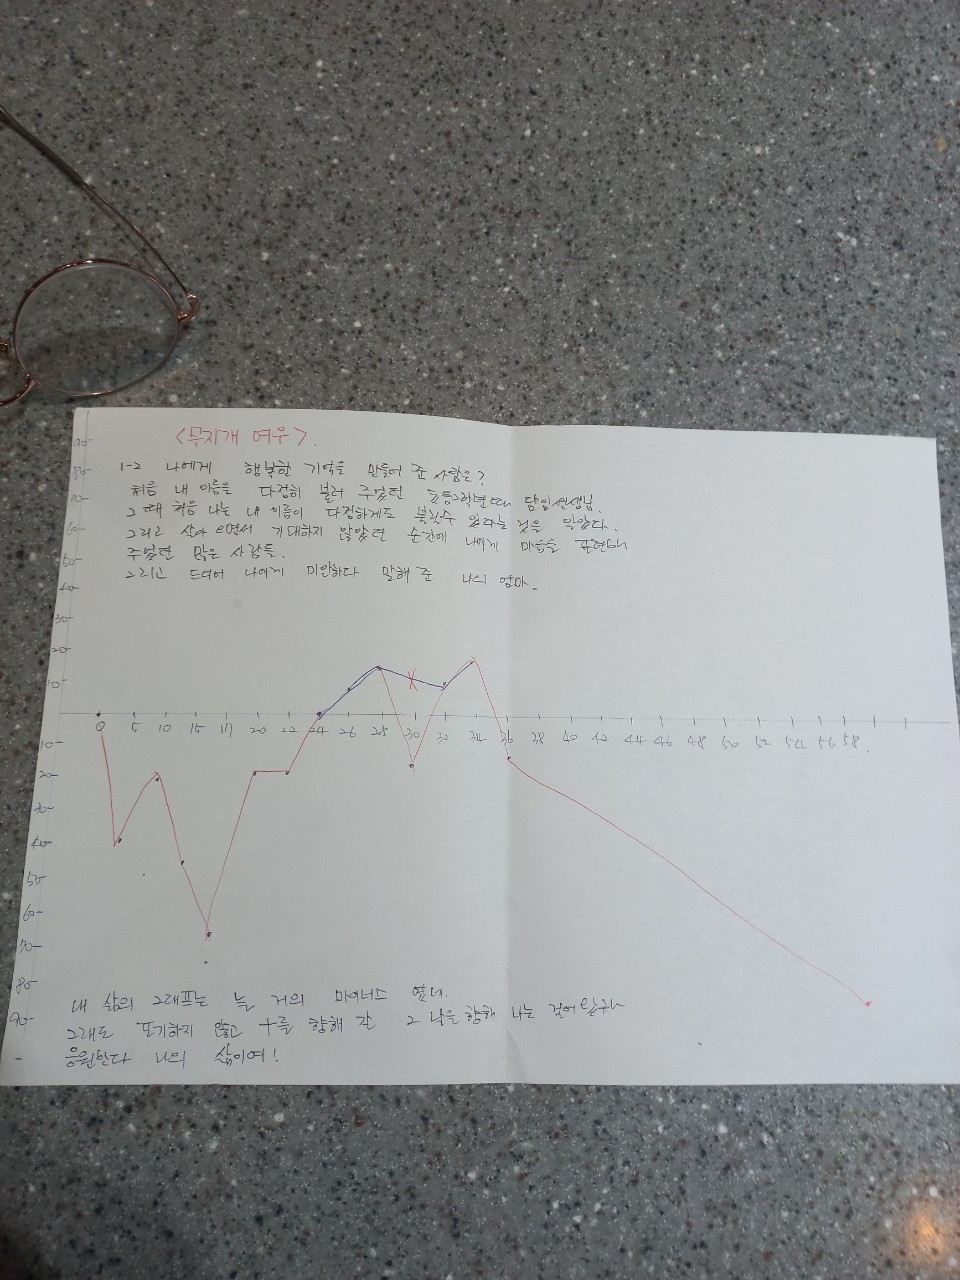 <무지개 여우>.
1-2 나에게 행복한 기억을 만들어 준 사람은?
처음 내 이름을 다정히 불러 주었던 초등2학년때 담임선생님.
그 때 처음 나는 내 이름이 다정하게도 불릴수 있다는 것을 알았다.
그리고 살아오면서 기대하지 않았던 순간에 나에게 마음을 표현해
주었던 많은 사람들.
그리고 드디어 나에게 미안하다 말해 준 나의 엄마.
90
80
70
60
50
40
30
20
10
0 5 10 15 17 20 22 24 26 28 30 32 34 36 38 40 42 44 46 48 50 52 54 56 58.
10
20
30
40
50
60
70
80
90
내 삶의 그래프는 늘 거의 마이너스 였네.
그래도 포기하지 않고 +를 향해 갈 그 날을 향해 나는 걸어
응원한다 나의 삶이여!